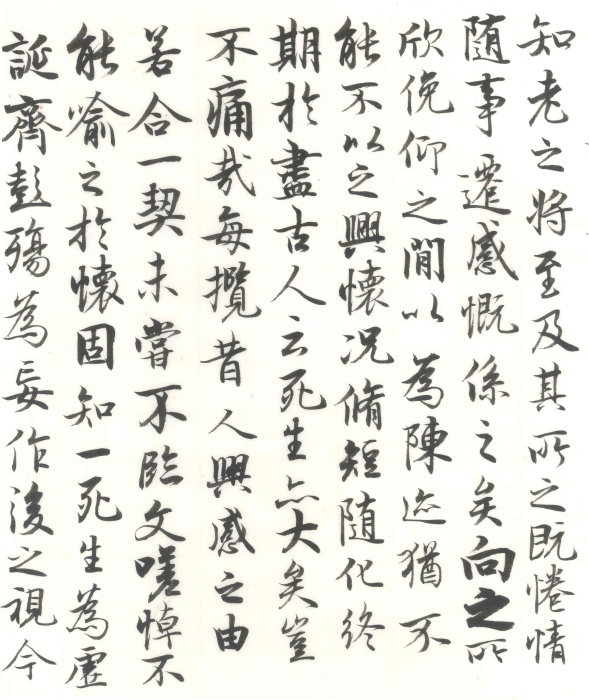 知老之将至及其所之既惓情
随事遷感慨係之矣向之所
欣俛仰之間以為陳迹猶不
能不以之興懷况脩短随化終
期於盡古人云死生亦大矣豈
不痛哉每攬昔人興感之由
若合一契未嘗不臨文嗟悼不
能喻之於懷固知一死生為虛
誕齊彭殤為妄作後之視今